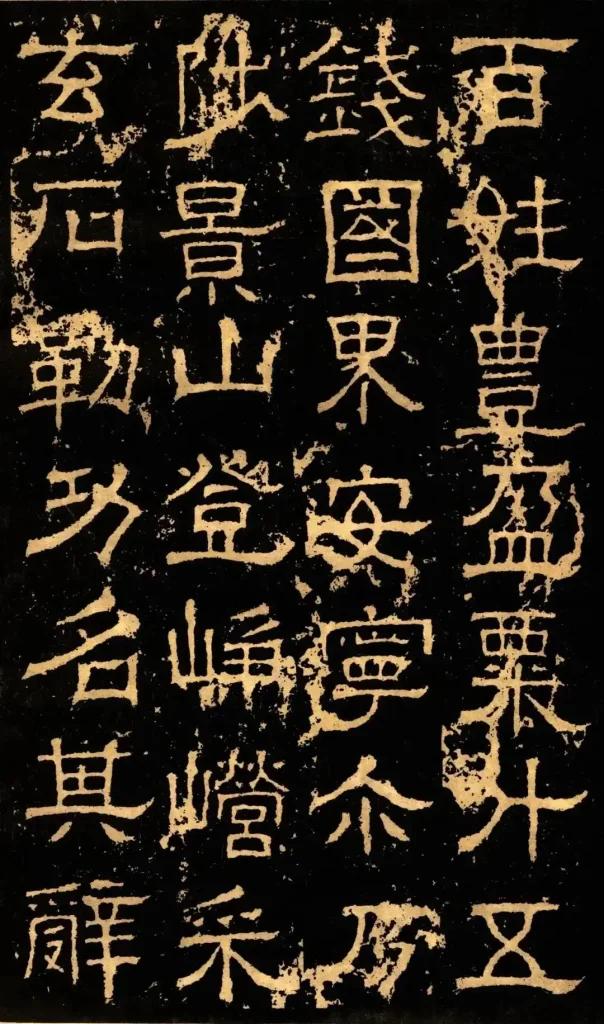 百姓豐盈粟升五
錢國界安寧尒乃
陟景山登崢巆采
玄石勒功名其辭